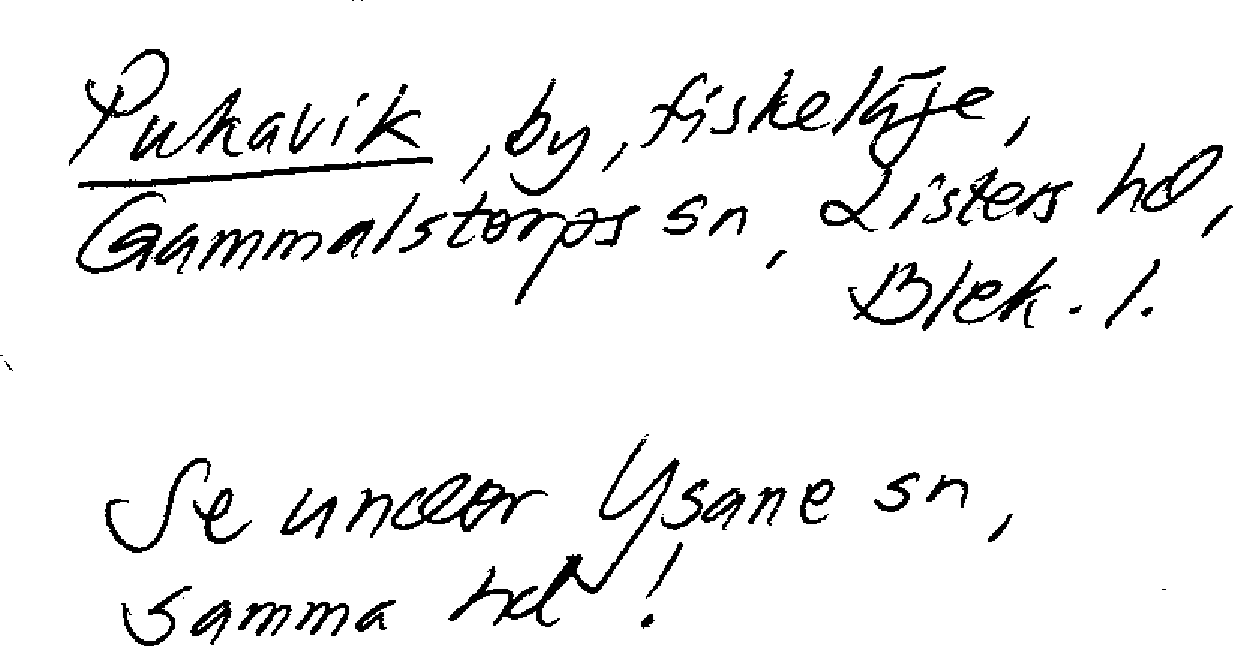 Pukavik, by, fiskeläge,
Gammalstorps sn, Listers hd,
Blek. l.
Se under Ysane sn,
samma hd!